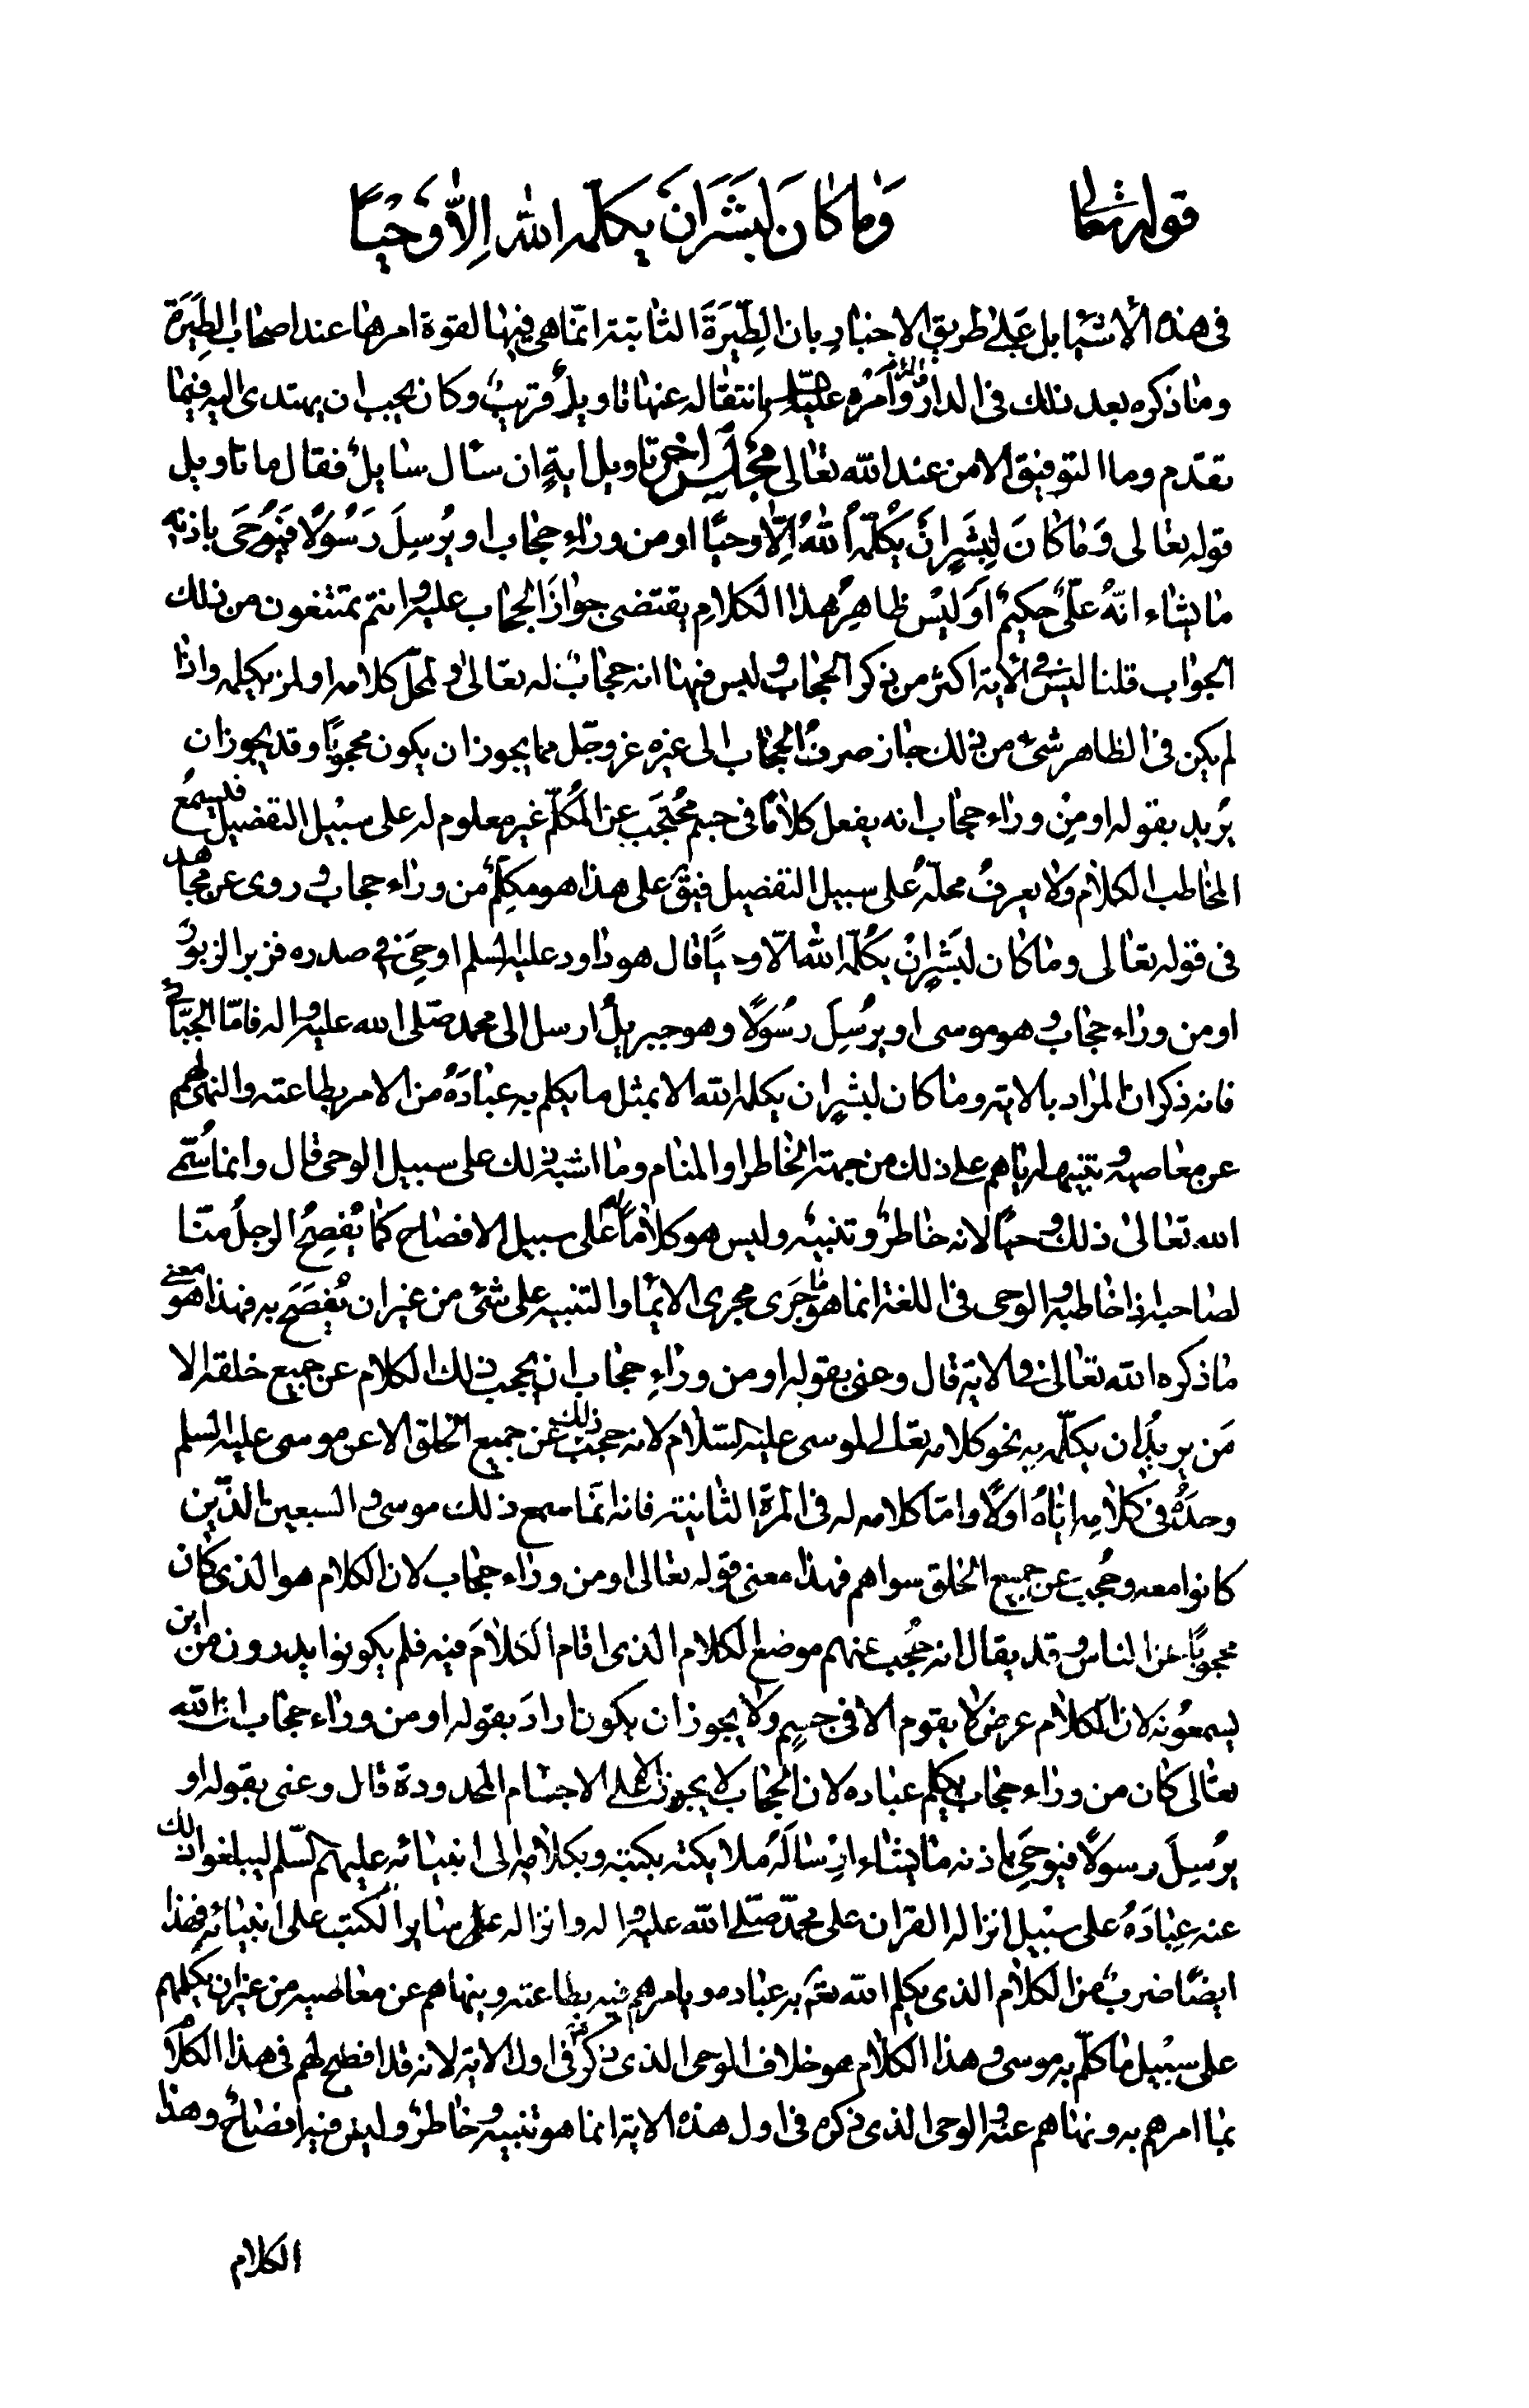 قوله تعالى وَما كانَ لبَشَرٍ انَ يكلّمه الله اِلاَّ وَحْيًا
فى هذه الأشيا بل عَلى طريق الاخبار بان الطِّيَرَةَ الثابتة انّما هى فيها لقوة امرها عند اصحاب الطِيَرَة
وما ذكره بعد ذلك فى الدار وامْره عليه السلم بانتقاله عنها تاويلٌ قريبٌ وكان يجب ان يهتدى اليه فيما
تقدّم وما التوفيق الا من عند الله تعالى مجلس اخر تاويل ايةٍ ان سئال سايلٌ فقال ما تاويل
قوله تعالى وَما كانَ لِبَشَرٍ انَ يُكَلِّمَهُ اللهُ اِلّا وحيًا او من وراءِ حجابٍ او يُرسِلَ رَسُولًا فَيُوحىَ باذنه
ما يشاء انّهُ علىٌّ حكيمٌ اوَليْسَ ظاهِرُ هذا الكلامِ يقتضى جوازَ الحجاب عليه وانتم تمنعون من ذلك
الجواب قلنا ليس فى الآية اكثر من ذكر الحجاب وليس فيها انه حجابٌ له تعالى او لمحلّ كلامه او لمن يكلمه واذا
لم يكن فى الظاهر شئ من ذلك جاز صرفُ الحجاب الى غيره عز وجّل مما يجوز ان يكون محجوبًا وقد يجوز ان
يُريد بقوله او مِن وراء حجاب انه يفعل كلامًا فى جسم مُحتَجَبٍ عن المُكلَّم غير معلوم له على سبيل التفصيل فيسمعُ
المخاطب الكلام ولا يعرفُ محلّهُ على سبيل التفصيل فيقَ على هذا هو مكلَّمٌ من وراء حجاب وروى عن مجاهد
فى قوله تعالى وما كان لبَشَرٍ انْ يُكلّمَه الله الّا وحيًا قال هو داود عليه السلم اوحِىَ فى صدره فزبر الزبورَ
او من وراء حجابٍ وهو موسى او يرُسِلَ رسُولًا وهو جبريلُ ارسل الى محمد صّلى الله عليه واله فامّا الجبّائى
فانه ذكر انّ المراد بالاية وما كان لبشرٍ ان يكلمه الله الا بمثل ما يكلم به عبادَهُ من الامر بطاعته والنهى لهم
عن معاصيه وتنبيهه اياهم على ذلك من جهة الخاطر او المنام وما اشبه ذلك على سبيل الوحى قال وانما سُمّى
الله تعالى ذلك وحيًا لانه خاطرٌ وتنبيه وليس هو كلامًا لهم على سبيل الافصاح كما يُفصِحُ الرجلُ منّا
لصاحبه اذا خاطبه والوحى فى اللغة انما هو ما جَرَى مجرى الايماء والتنبيه على شئ من غير ان يُفصَحَ به فهذا هو معنى
ما ذكره الله تعالى فى الاية قال وعنى بقوله او من وراءِ حجاب ان يحجب ذلك الكلام عن جميع خلقه الا
مَن يريدُ ان يكلّمه به نحو كلامه تعالى لموسى عليه السّلام لانه حجب ذلك عن جميع الخلق الا عن موسى عليه السلم
وحدَهُ فى كَلامِه ايّاهُ اولًا وامّا كلامه له فى المرة الثانية فانه انّما سمع ذلك موسى والسبعين الذّين
كانوا معه وحُجِبَ عن جميع الخلق سواهم فهذا معنى قوله تعالى او من وراء حجاب لان الكلام هو الذى كان
محجوبًا عن الناس وقد يقال انه حُجِب عنهم موضع الكلام الذى اقام الكلامَ فيه فلم يكونوا يدرون من اين
يسمعُونه لان الكلام عرض لا يقوم الا فى جسمٍ ولا يجوز ان يكون ارادَ بقوله او من وراء حجاب ان الله
تعالى كان من وراء حجاب يكلم عباده لان الحجاب لا يجوز الا على الاجسام المحدودة قال وعنى بقوله او
يرُسِلَ رسولًا فيوحىَ باذنه ما يشاء ارِسالَهُ ملايكته بكتبه وبكلامه الى انبيائه عليهم السّلم ليبلغوا ذلك
عنه عِبادَهُ على سبيل انزاله القران على محمّد صّلى الله عليه واله وانزاله على ساير الكتب على انبيائه فهذا
ايضًا ضربٌ من الكلام الذى يكلم الله تعَ به عباده ويامرهم فيه بطاعته وينهاهم عن معاصيه من غير ان يكلمهم
على سبيل ما كلّم به موسى وهذا الكلام هو خلاف الوحى الذى ذكره فى اول الاية لانه قد افصح لهم فى هذا الكلام
بما امرهم به ونهاهم عنه والوحى الذى ذكره فى اول هذه الاية انما هو تنبيه وخاطرٌ وليس فيه افصاحٌ وهذا
الكلام